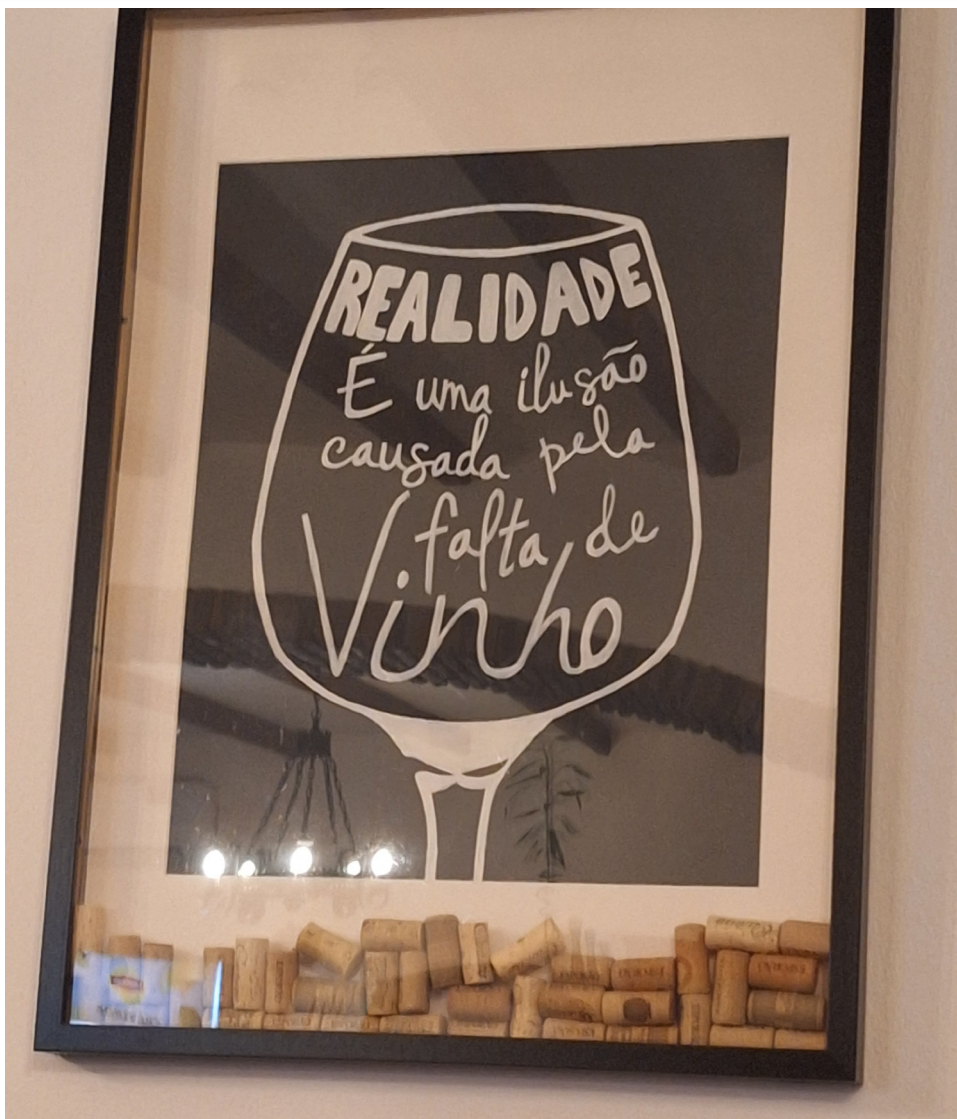 REALIDADE
É uma ilusão
causada pela
falta de
Vinho